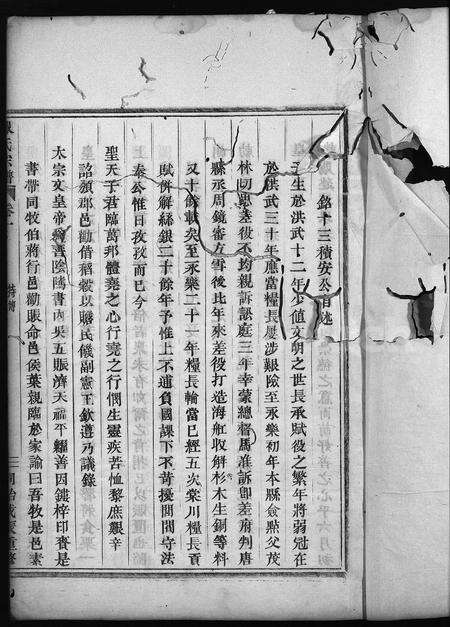 銘十三積安公自述
生於洪武十二年少值文明之世長承賦役之繁年將弱冠在
於洪武三十年應當糧長屢涉艱險至永樂初年本縣僉點父茂
林差役不均親訴訟庭三年幸蒙總督馬准訴卽差府判唐
縣丞周鏡審方雪後比年來差役打造海舡收解杉木生銅等料
又十餘載矣至永樂二十一年糧長輪當已經五次棠川糧長貢
賦併解絲銀二十餘年予惟上不逋負國課下不苛擾閭閻守法
奉公惟日孜孜而已今
聖天子君臨萬邦體堯之心行堯之行憫生靈疾苦恤黎庶艱辛
詔頒郡邑勸借稻穀以賑民饑副憲王欽遵乃議錄
太宗文皇帝為善陰隲書內吳五賑濟天福平糶善因鏤梓印賚是
書帶同牧伯蔣行邑勸賑命邑侯葉親臨於家諭曰吾牧是邑素
氏宗譜 卷一